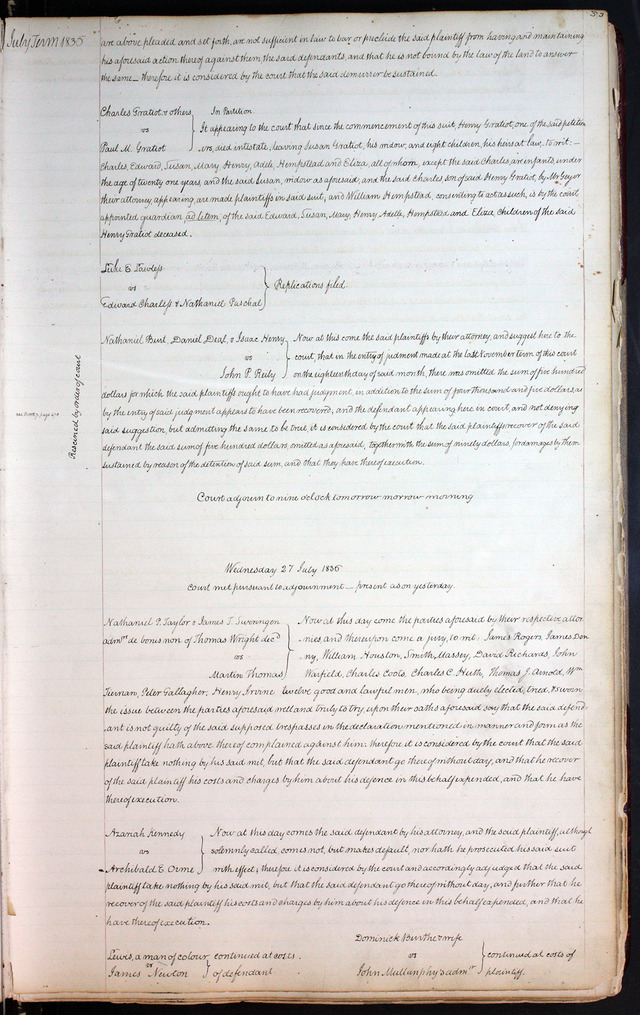 July Term 1836
are above pleaded and set forth, are not sufficient in law to bar or preclude the said plaintiff from having and maintaining
his aforesaid action thereof against them, the said defendants, and that he is not bound by the law of the land to answer
the same – therefore it is considered by the court that the said demurrer be sustained.
Charles Gratiot & others } In Partition.
vs
Paul M. Gratiot
It appearing to the court that since the commencement of this suit, Henry Gratiot, one of the said petition
ers, died intestate, leaving Susan Gratiot, his widow, and eight children, his heirs at law, to wit: –
Charles, Edward, Susan, Mary, Henry, Adele, Hempstead and Eliza, all of whom, except the said Charles are infants, under
the age of twenty one years, and the said Susan, widow as aforesaid, and the said Charles son of said Henry Gratiot, by Mr Geyer
their attorney appearing, are made plaintiffs in said suit, and William Hempstead, consenting to act as such, is by the court
appointed guardian ad litem, of the said Edward, Susan, Mary, Henry Adelle, Hempstead and Eliza Children of the said
Henry Gratiot deceased.
Luke E Lawless
vs
Edward Charless & Nathaniel Paschal
} Replications filed
Nathaniel Burt, Daniel Deal, & Isaac Henry
vs
John P. Reily
Now at this come the said plaintiffs by their attorney, and suggest here to the
court, that in the entry of judgment made at the last November term of this court
on the eighteenth day of said month, there was omitted the sum of five hundred
dollars for which the said plaintiffs ought to have had judgment, in addition to the sum of four thousand and five dollars, as
by the entry of said judgment appears to have been recovered, and the defendant appearing here in court, and not denying
said suggestion, but admitting the same to be true, it is considered by the court that the said plaintiffs recover of the said
defendant the said sum of five hundred dollars, omitted as aforesaid, together with the sum of ninety dollars, for damages by them
sustained by reason of the detention of said sum, and that they have thereof execution.
Rescined by order of court
Court adjourn to nine o'clock tomorrow morrow morning
Wednesday 27 July 1836
Court met pursuant to adjournment – present as on yesterday.
Nathaniel P. Taylor & James T. Sweringen
admrs de bonis non of Thomas Wright decd
vs
Martin Thomas
Now at this day come the parties aforesaid by their respective attor
nies and thereupon come a jury, to wit: James Rogers, James Don
ny, William Houston, Smith, Massey, David Richards, John
Warfield, Charles Coots, Charles C. Huth, Thomas J. Arnold, Wm
Tiernan, Peter Gallagher, Henry Irvine twelve good and lawful men, who being duly elected, tried, & sworn
the issue between the parties aforesaid well and truly to try, upon their oaths aforesaid say that the said defend
ant is not guilty of the said supposed trespasses in the declaration mentioned in manner and form as the
said plaintiff hath above thereof complained against him: therefore it is considered by the court that the said
plaintiff take nothing by his said writ, but that the said defendant go thereof without day, and that he recover
of the said plaintiff his costs and charges by him about his defence in this behalf expended, and that he have
thereof execution.
Azariah Kennedy
vs
Archibald E. Orme
Now at this day comes the said defendant by his attorney, and the said plaintiff, although
solemnly called, comes not, but makes default, nor hath he prosecuted his said suit
with effect; therefore it is considered by the court and accordingly adjudged that the said
plaintiff take nothing by his said writ, but that the said defendant go thereof without day, and further that he
recover of the said plaintiff his costs and charges by him about his defence in this behalf expended, and that he
have thereof execution.
Lewis, a man of colour
vs
James Newton
} continued at costs
of defendant
Dominick Burthe & wife
vs
John Mullanphy's admr
} continued at costs of
plaintiff.